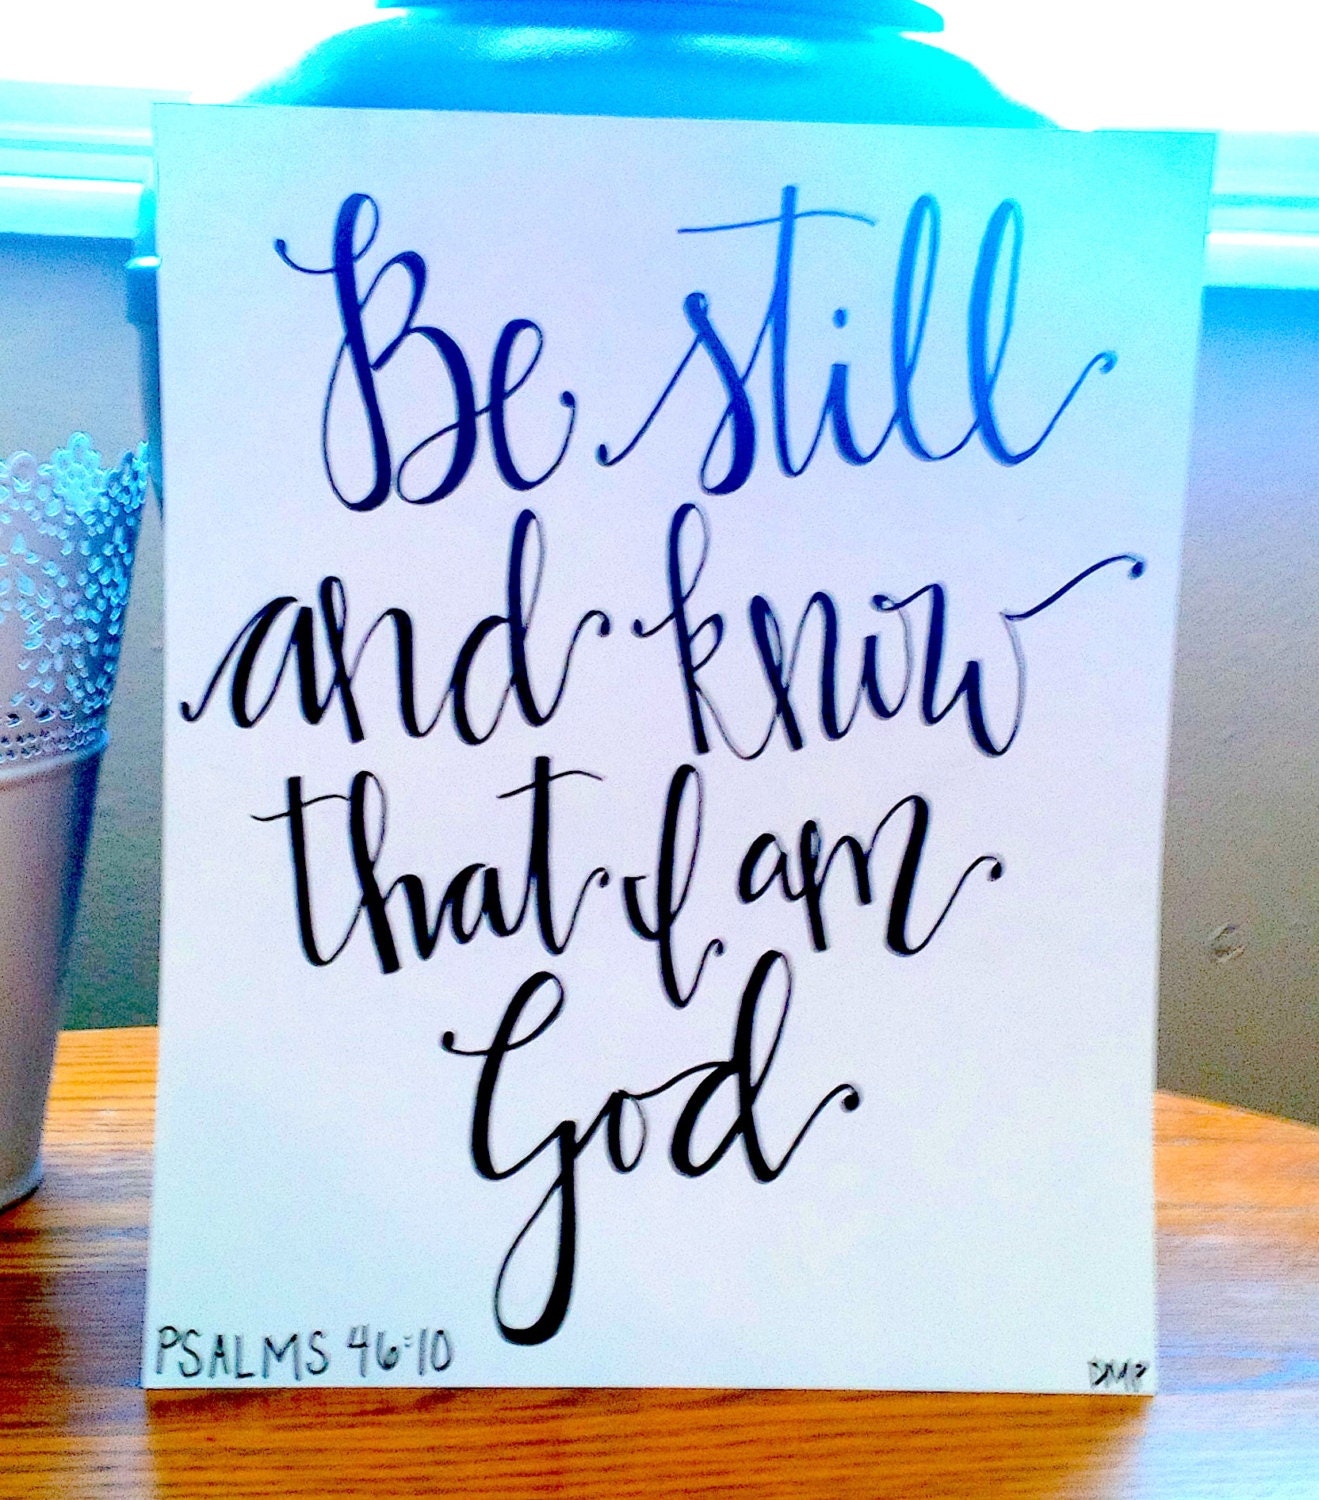 Be still
and know
that I am
God
PSALMS 46:10
DMP